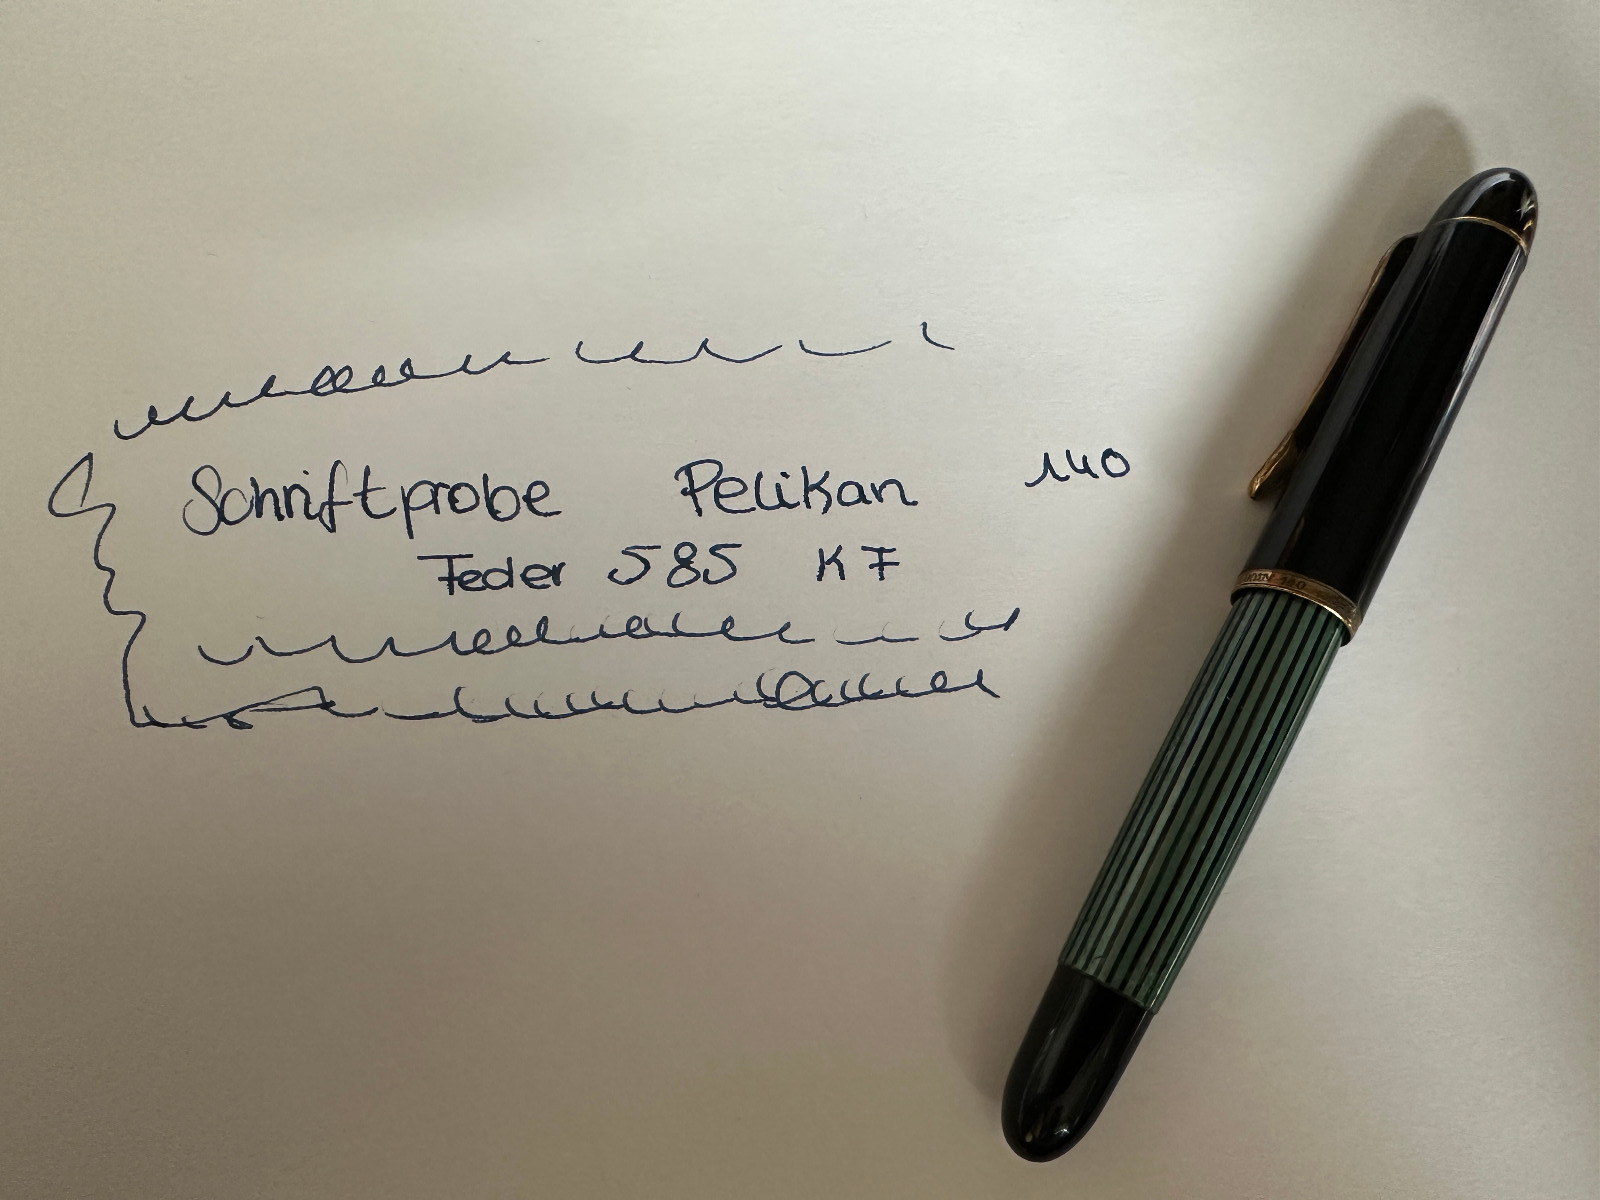 Schriftprobe Pelikan 140
Feder 585 KF
140